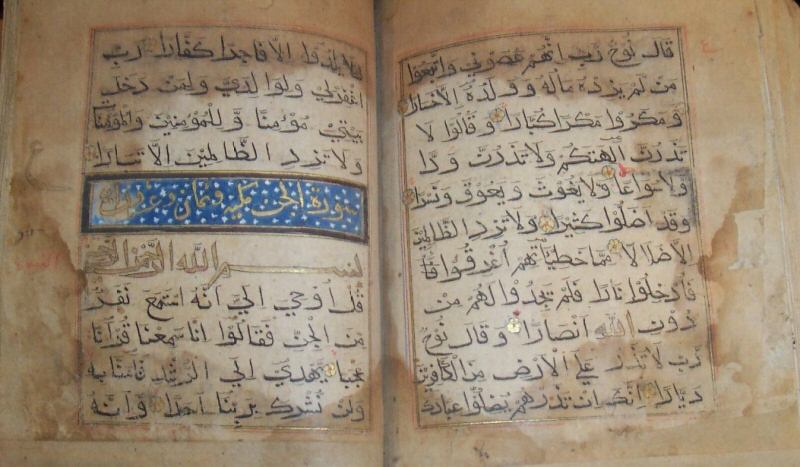 قال نوح رب انهم عصوني واتبعوا
من لم يزده ماله وولده الا خسارا
ومكروا مكرا كبارا وقالوا لا
تذرن الهتكم ولا تذرن ودا
ولا سواعا ولا يغوث ويعوق ونسرا
وقد اضلوا كثيرا ولا تزد الظالمين
الا ضلالا مما خطيئاتهم اغرقوا
فادخلوا نارا فلم يجدوا لهم من
دون الله انصارا وقال نوح
رب لا تذر علي الارض من الكافرين
ديارا انك ان تذرهم يضلوا عبادك
ولا يلدوا الا فاجرا كفارا رب
اغفر لي ولوالدي ولمن دخل
بيتي مؤمنا وللمؤمنين والمؤمنات
ولا تزد الظالمين الا تبارا
سورة الجن مكية وثمان وعشرون
بسم الله الرحمن الرحيم
قل اوحي الي انه استمع نفر
من الجن فقالوا انا سمعنا قرانا
عجبا يهدي الي الرشد فامنا به
ولن نشرك بربنا احدا وانه